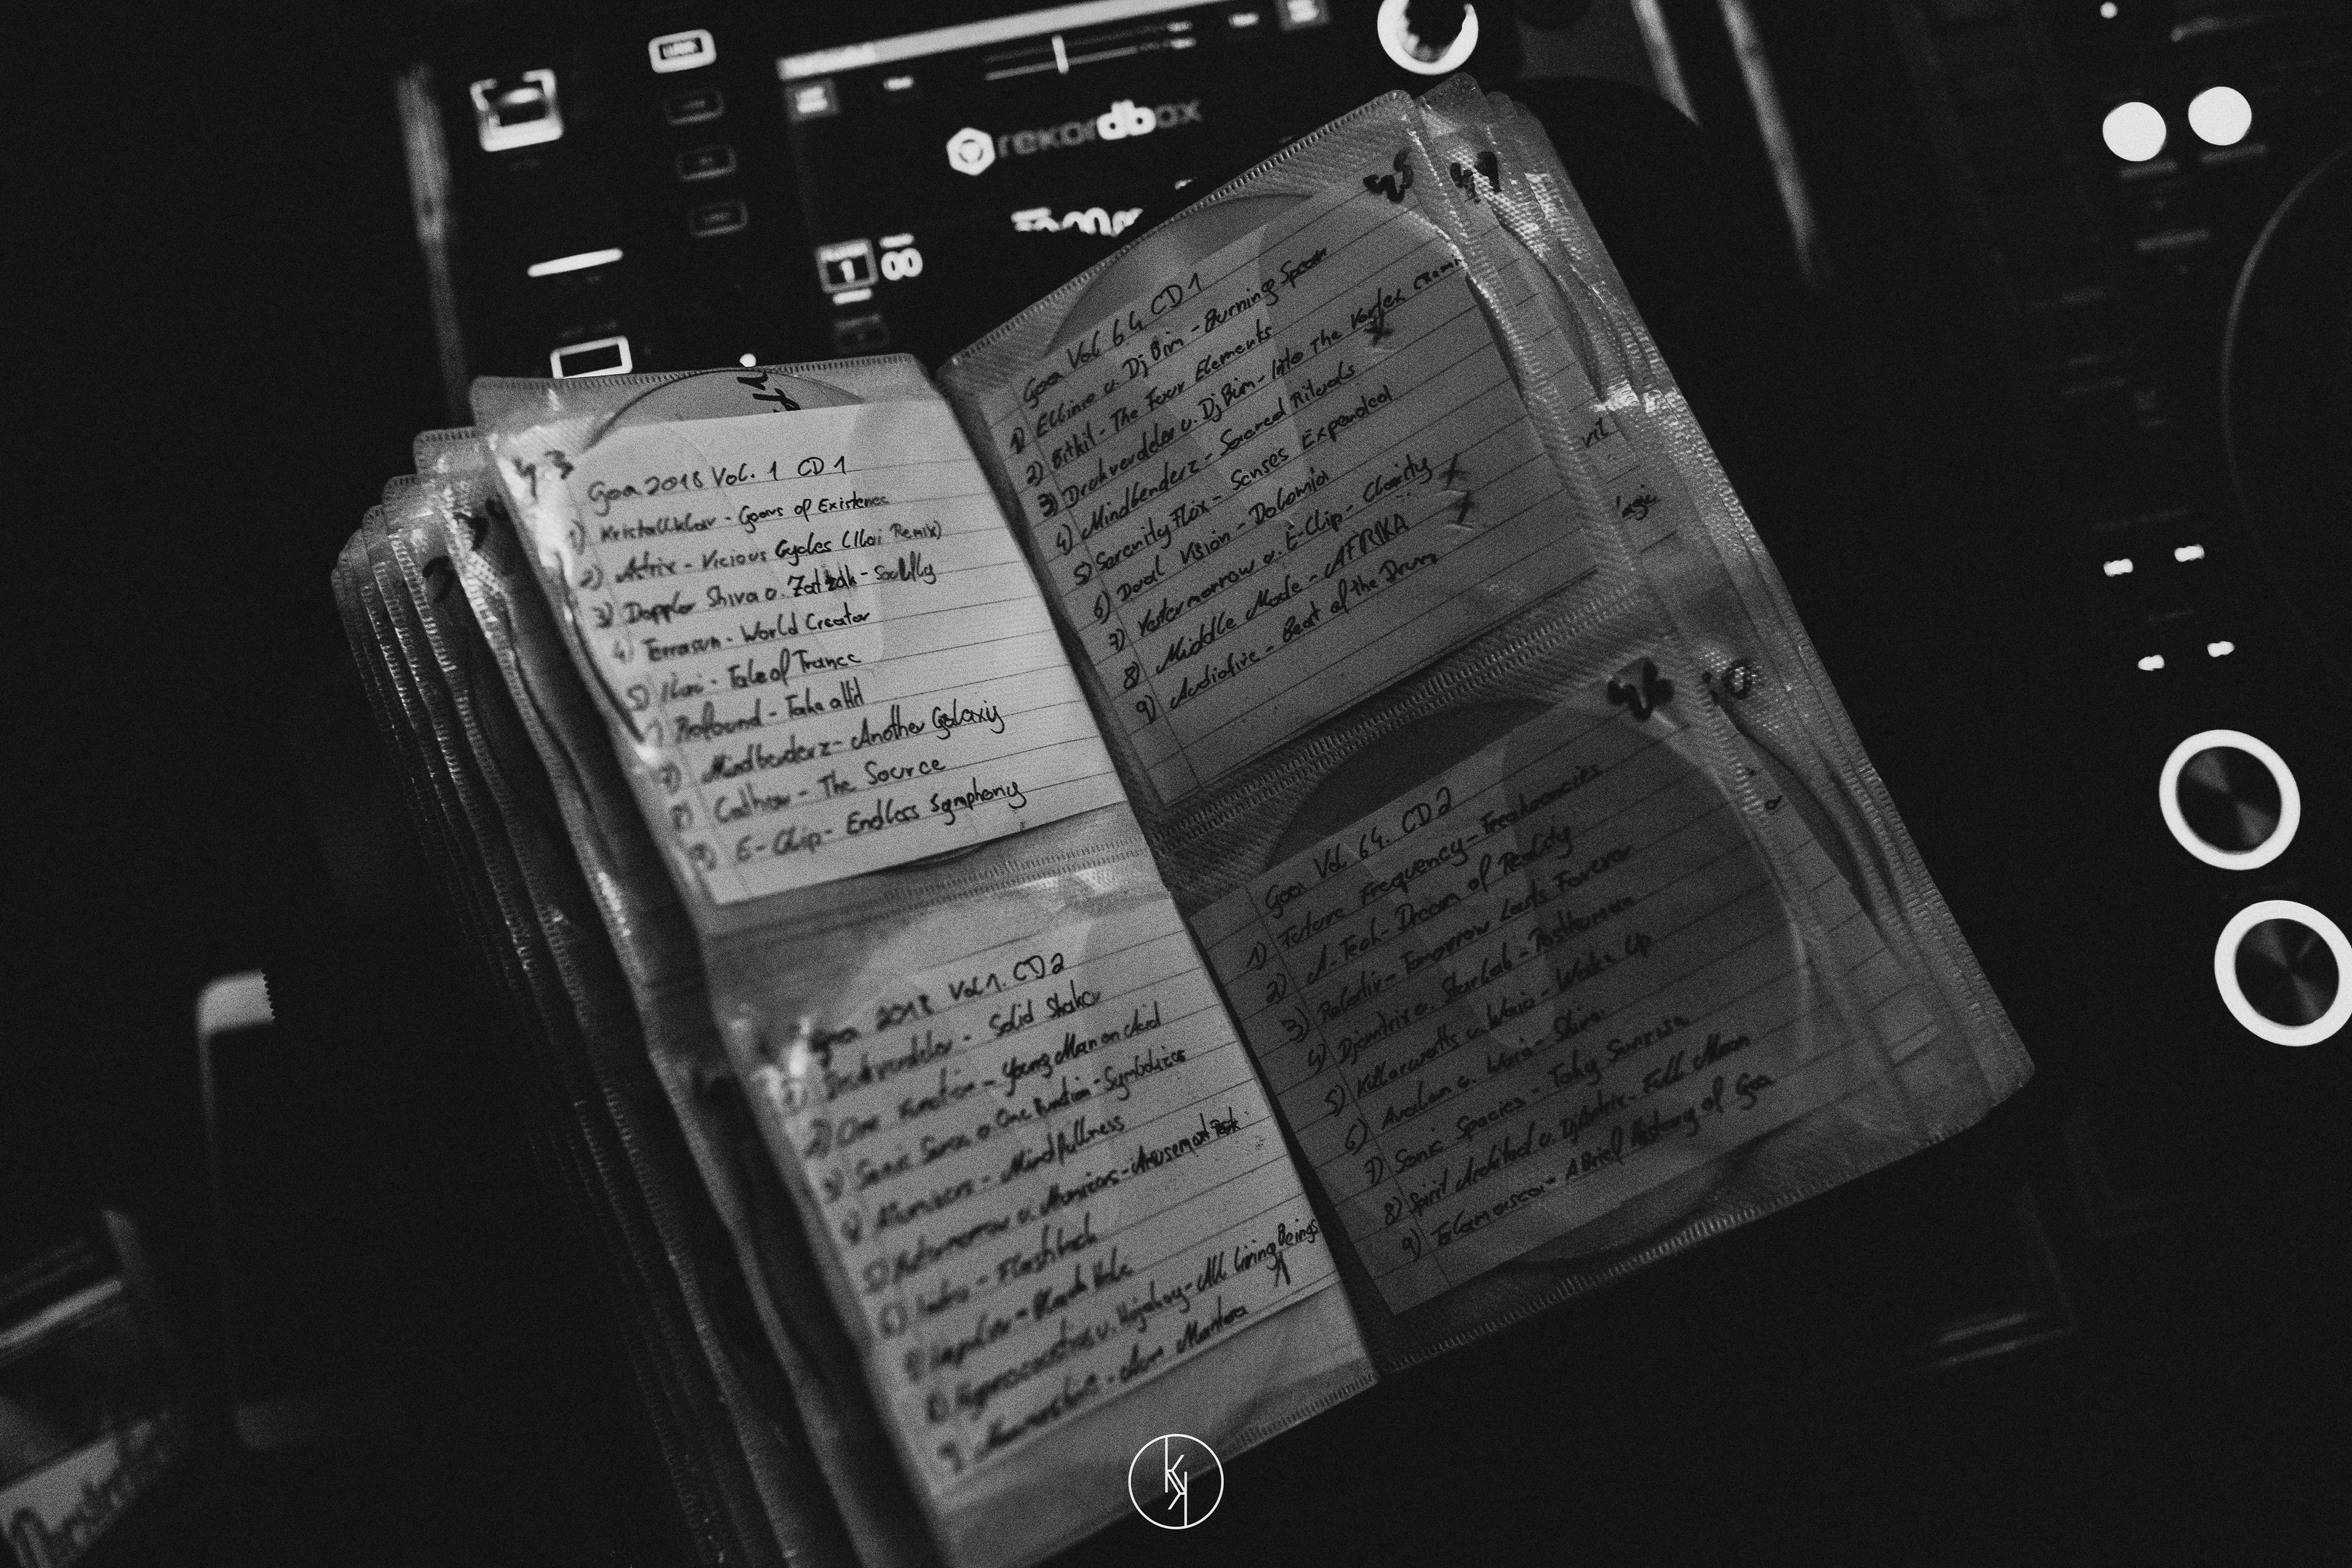 rekordbox
1 00
43
Goa 2018 Vol. 1 CD 1
1) Kristallklar - Gears of Existence
2) Astrix - Vicious Cycles (Ilai Remix)
3) Doppler Shiva v. - Soulfly
4) Terrasun - World Creator
5) Ilai - Tale of Trance
Profound - Take a Hit
7) Mindbenderz - Another Galaxy
8) - The Source
9) E-Clip - Endless Symphony
Goa 2018 Vol 1. CD 2
1) - Solid Shake
2) One Function - Young Man on Acid
3) Sonic Sense v. One Function - Symbolizer
4) Atomizers - Mindfullness
5) v. Atomizers - Amusement Park
6) - Flashback
- Black Hole
8) v. - All Living Beings
9) - Aum Mantra
45
49
Goa Vol 64 CD 1
1) v. Dj Bim - Burning Spear
2) - The Four Elements
3) Drukverdeler v. Dj Bim - Into The Vortex
4) Mindbenderz - Sacred Rituals
5) Serenity Flux - Senses Expanded
6) Dual Vision -
7) Yestermorrow v. E-Clip - Clearity
8) Middle Mode - AFRIKA
9) Audiofire - Beat of the Drum
46
Goa Vol. 64. CD 2
1) Future Frequency -
2) A-Tech - Dream of Reality
3) - Tomorrow Lasts Forever
4) Djantrix v. Starlab - Posthuman
5) Killerwatts v. Waio - Wake Up
6) Avalon v. Waio - Shiva
7) Sonic Species - Sunrise
8) Spirit Architect v. Djantrix - Full Moon
9) - A Brief History of Goa